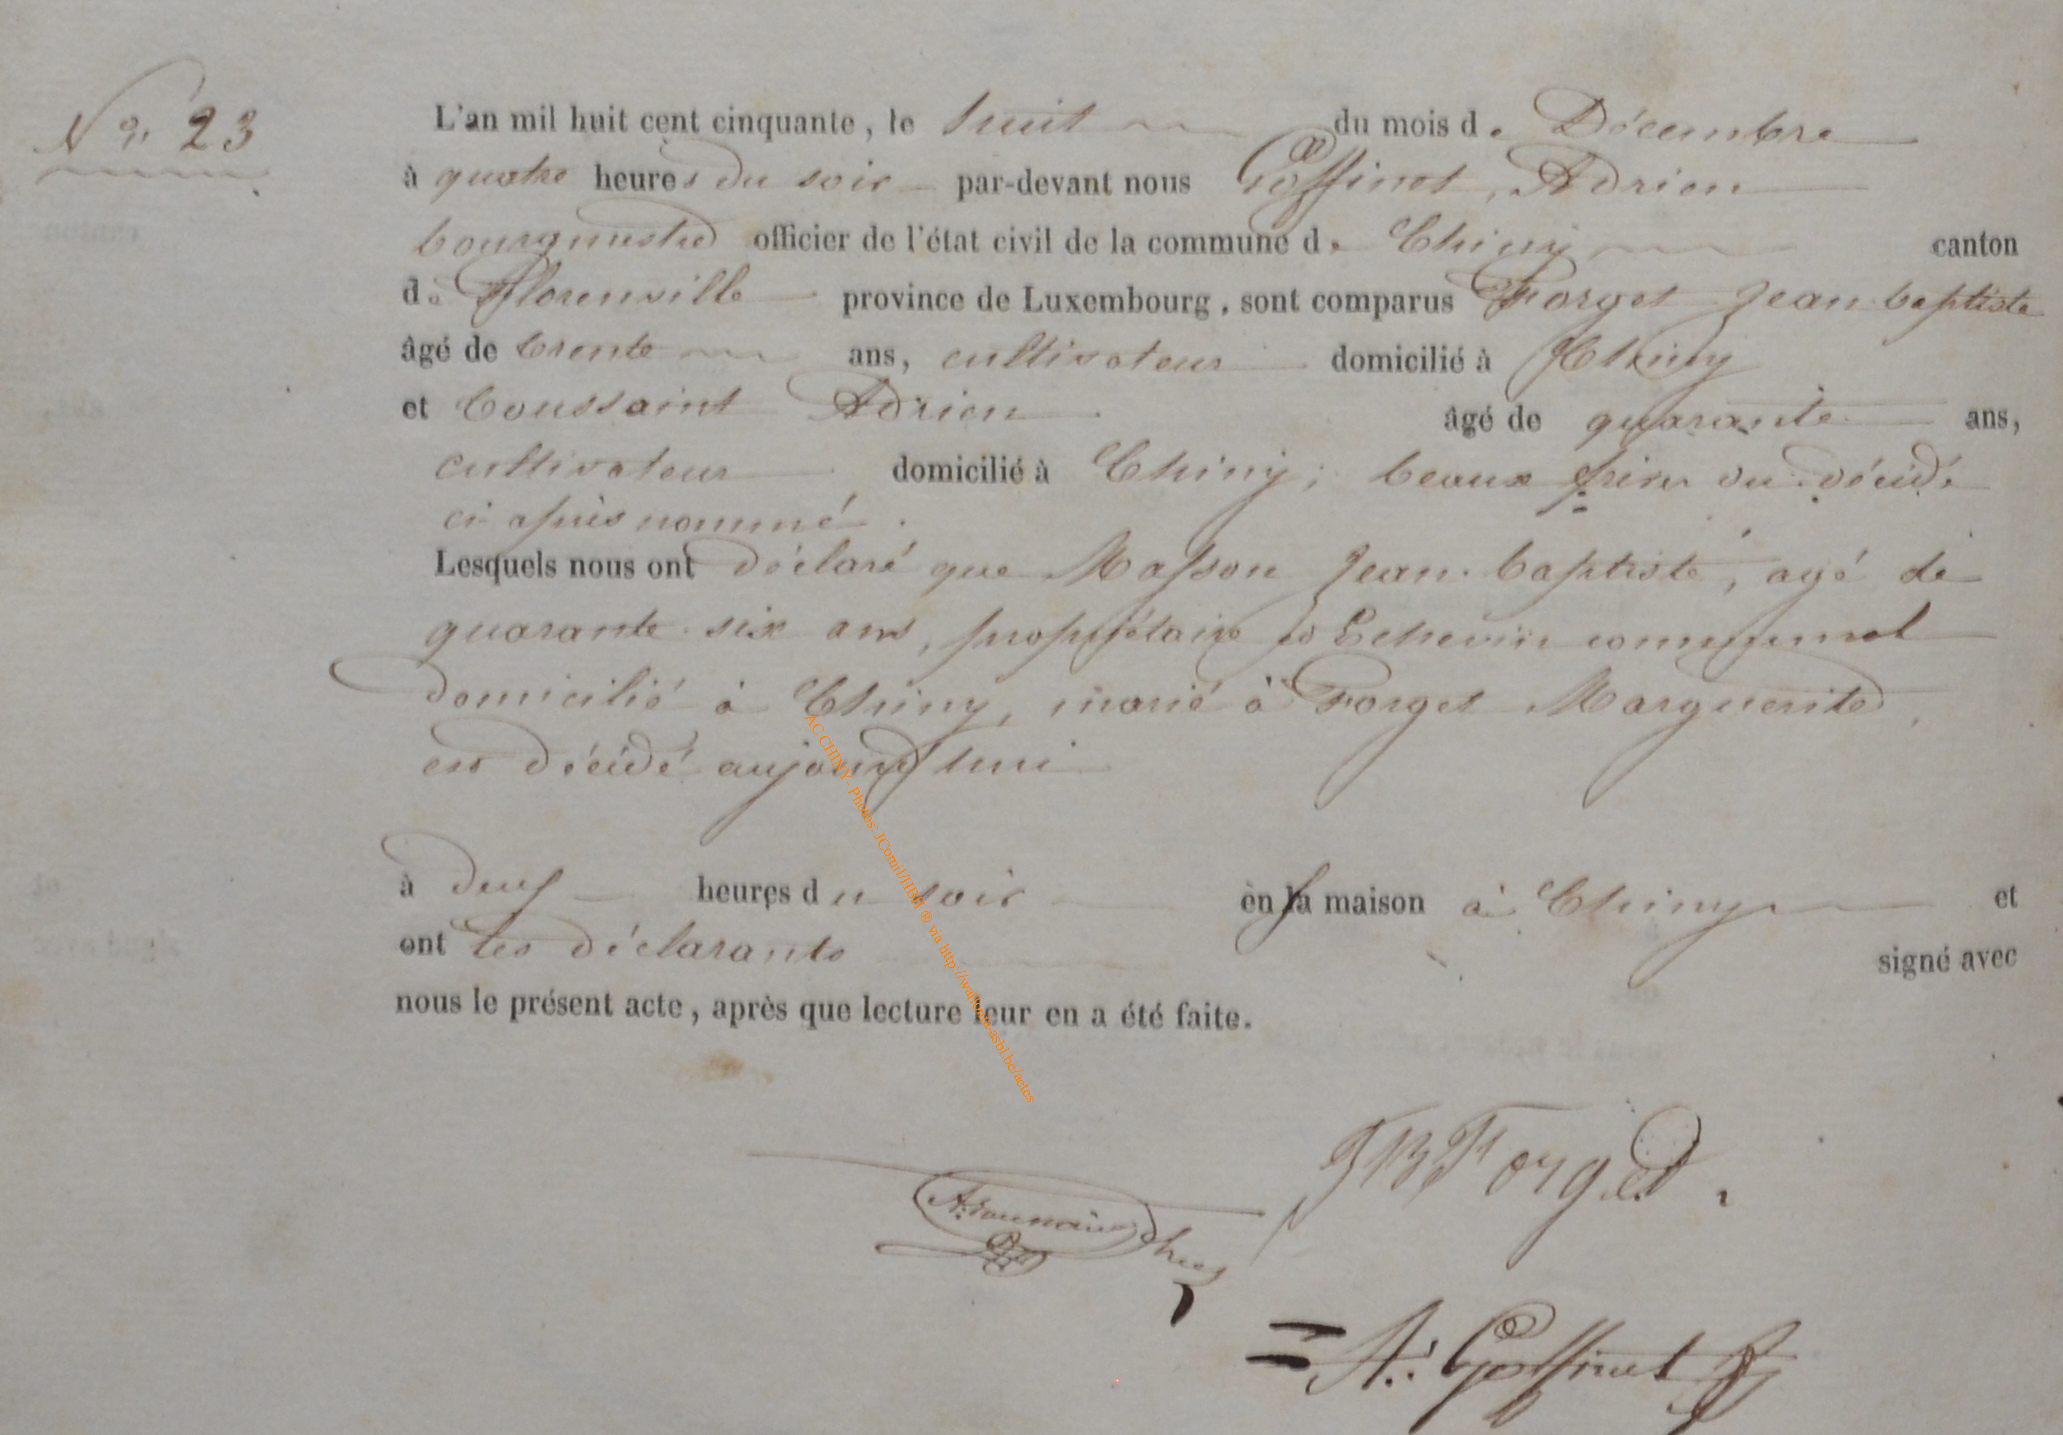 N° 23
L'an mil huit cent cinquante, le huit du mois de Décembre
à quatre heures du soir par-devant nous Goffinet, Adrien
bourgmestre officier de l'état civil de la commune de Chiny canton
de Florenville province de Luxembourg, sont comparus Forget Jean baptiste
âgé de trente ans, cultivateur domicilié à Chiny
et toussaint Adrien âgé de quarante ans,
cultivateur domicilié à Chiny; beaux frères du décédé
ci après nommé.
Lesquels nous ont déclaré que Masson Jean-baptiste, agé de
quarante-six ans, propriétaire et Echevin communal
domicilié à Chiny, marié à Forget Marguerite,
est décédé aujourd'hui
à deux heures du soir en sa maison à Chiny et
ont les déclarants signé avec
nous le présent acte, après que lecture leur en a été faite.
JB Forget.
A: Goffinet
AC-CHINY - Photos: JCornil/IHM ® via http://wallonia-asbl.be/actes